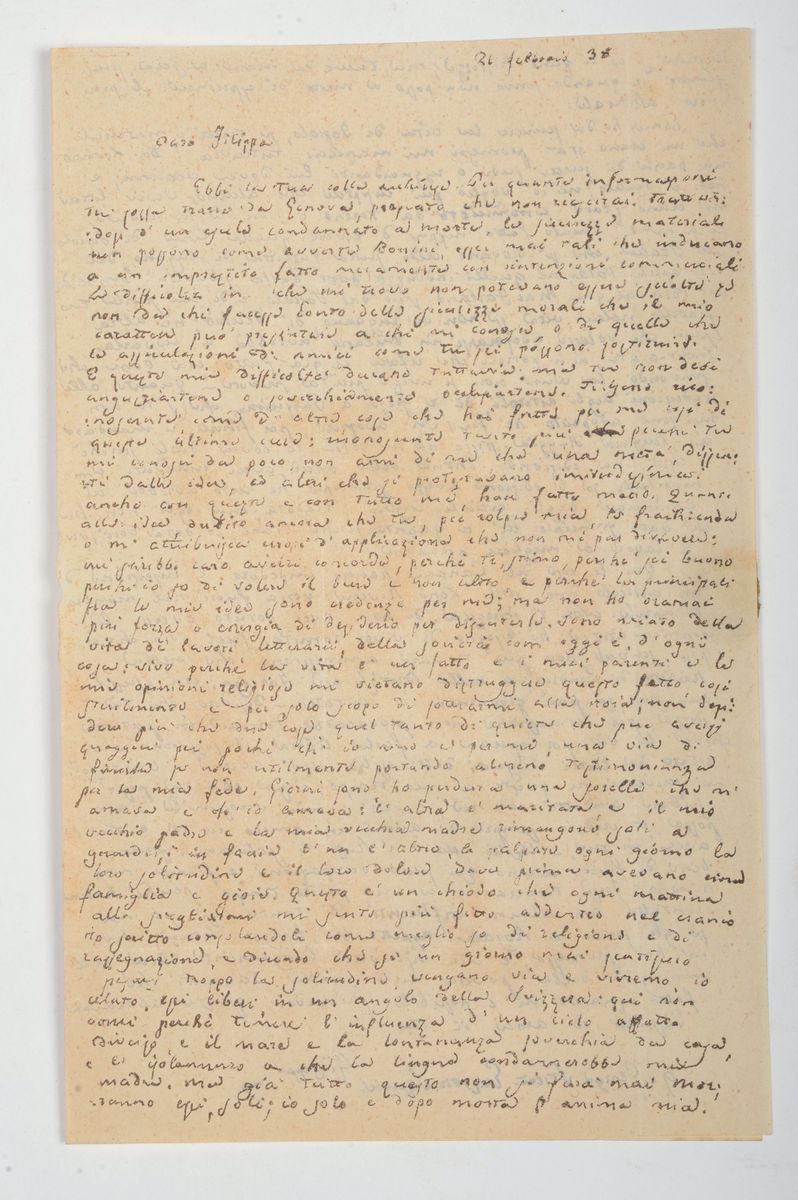 21 febbraio 38
Caro Filippo
Ebbi la tua colla acchiusa. Per quante informazioni
tu possa trarre da Genova, purgato che non riescirai. Trattan
dosi d'un esule condannato a morte, le sicurezze materiali
non possono come avverte Bonini, esser mai tali che inducano
a un imprestito fatto meramente con intenzioni commerciali
Le difficoltà in che mi trovo non potevano essere sciolte se
non da chi facesse conto delle sicurezze morali che il mio
carattere può presentare a chi mi conosce o di quelle che
le assicurazioni di amici come tu sei possono sostituirvi.
E queste mie difficoltà durano tuttavia: ma tu non devi
angustiartene o soverchiamente occupartene. Ti sono rico:
noscente come d'altre cose che hai fatto per me così di
queste ultime cure: riconoscente tanto più perché tu
mi conosci da poco, non ami di me che una metà, dissen
ti dalle idee, ed altri che si protestavano
anche con queste e con tutto me, han fatto meno. Quanto
alle idee dubito ancora che tu, per colpa mia, le frantenda
o m'attribuisca errori d'applicazione che non mi par d'avere:
mi sarebbe caro averti concorde, perché ti stimo, perché sei buono
perché io so di volere il bene e non altro, e perché le principali
fra le mie idee sono credenze per me; ma non ho oramai
più forza o energia di desiderio per discuterle. Sono nojato della
vita di lavori letterarii, della società com'oggi è, d'ogni
cosa: vivo perché la vita è un fatto e i miei parenti e le
mie opinioni religiose mi vietano distruggere questo fatto così
sterilmente e per solo scopo di sottrarmi alla noia; non desi
dero più che due cose quel tanto di quiete che può aversi
quaggiù pei pochi ch'io amo e per me, una via di
finirla se non utilmente portando almeno testimonianza
per la mia fede. Giorni sono ho perduta una sorella che m'
amava e ch'io amava: l'altra è maritata, e il mio
vecchio padre e la mia vecchia madre rimangono soli a
guardarsi in faccia l'un l'altro, a palpare ogni giorno la
loro solitudine e il loro dolore dove prima avevano
famiglia e gioie. Questo è un chiodo che ogni mattina
allo svegliarmi mi sento più fitto addentro nel cranio
Ho scritto consolandoli come meglio so di religione e di
rassegnazione, e dicendo che se un giorno mai patissero
troppo la solitudine, vengano via e vivremo io
celato, essi liberi in un angolo della Svizzera: qui non
oserei perché temerei l'influenza d'un cielo affatto
diviso, e il mare e la lontananza soverchia da casa,
e l'isolamento a che la lingua condannerebbe mia
madre. Ma già tutto questo non si farà mai. Mor
ranno essi, soli; io solo e dopo morta l'anima mia.